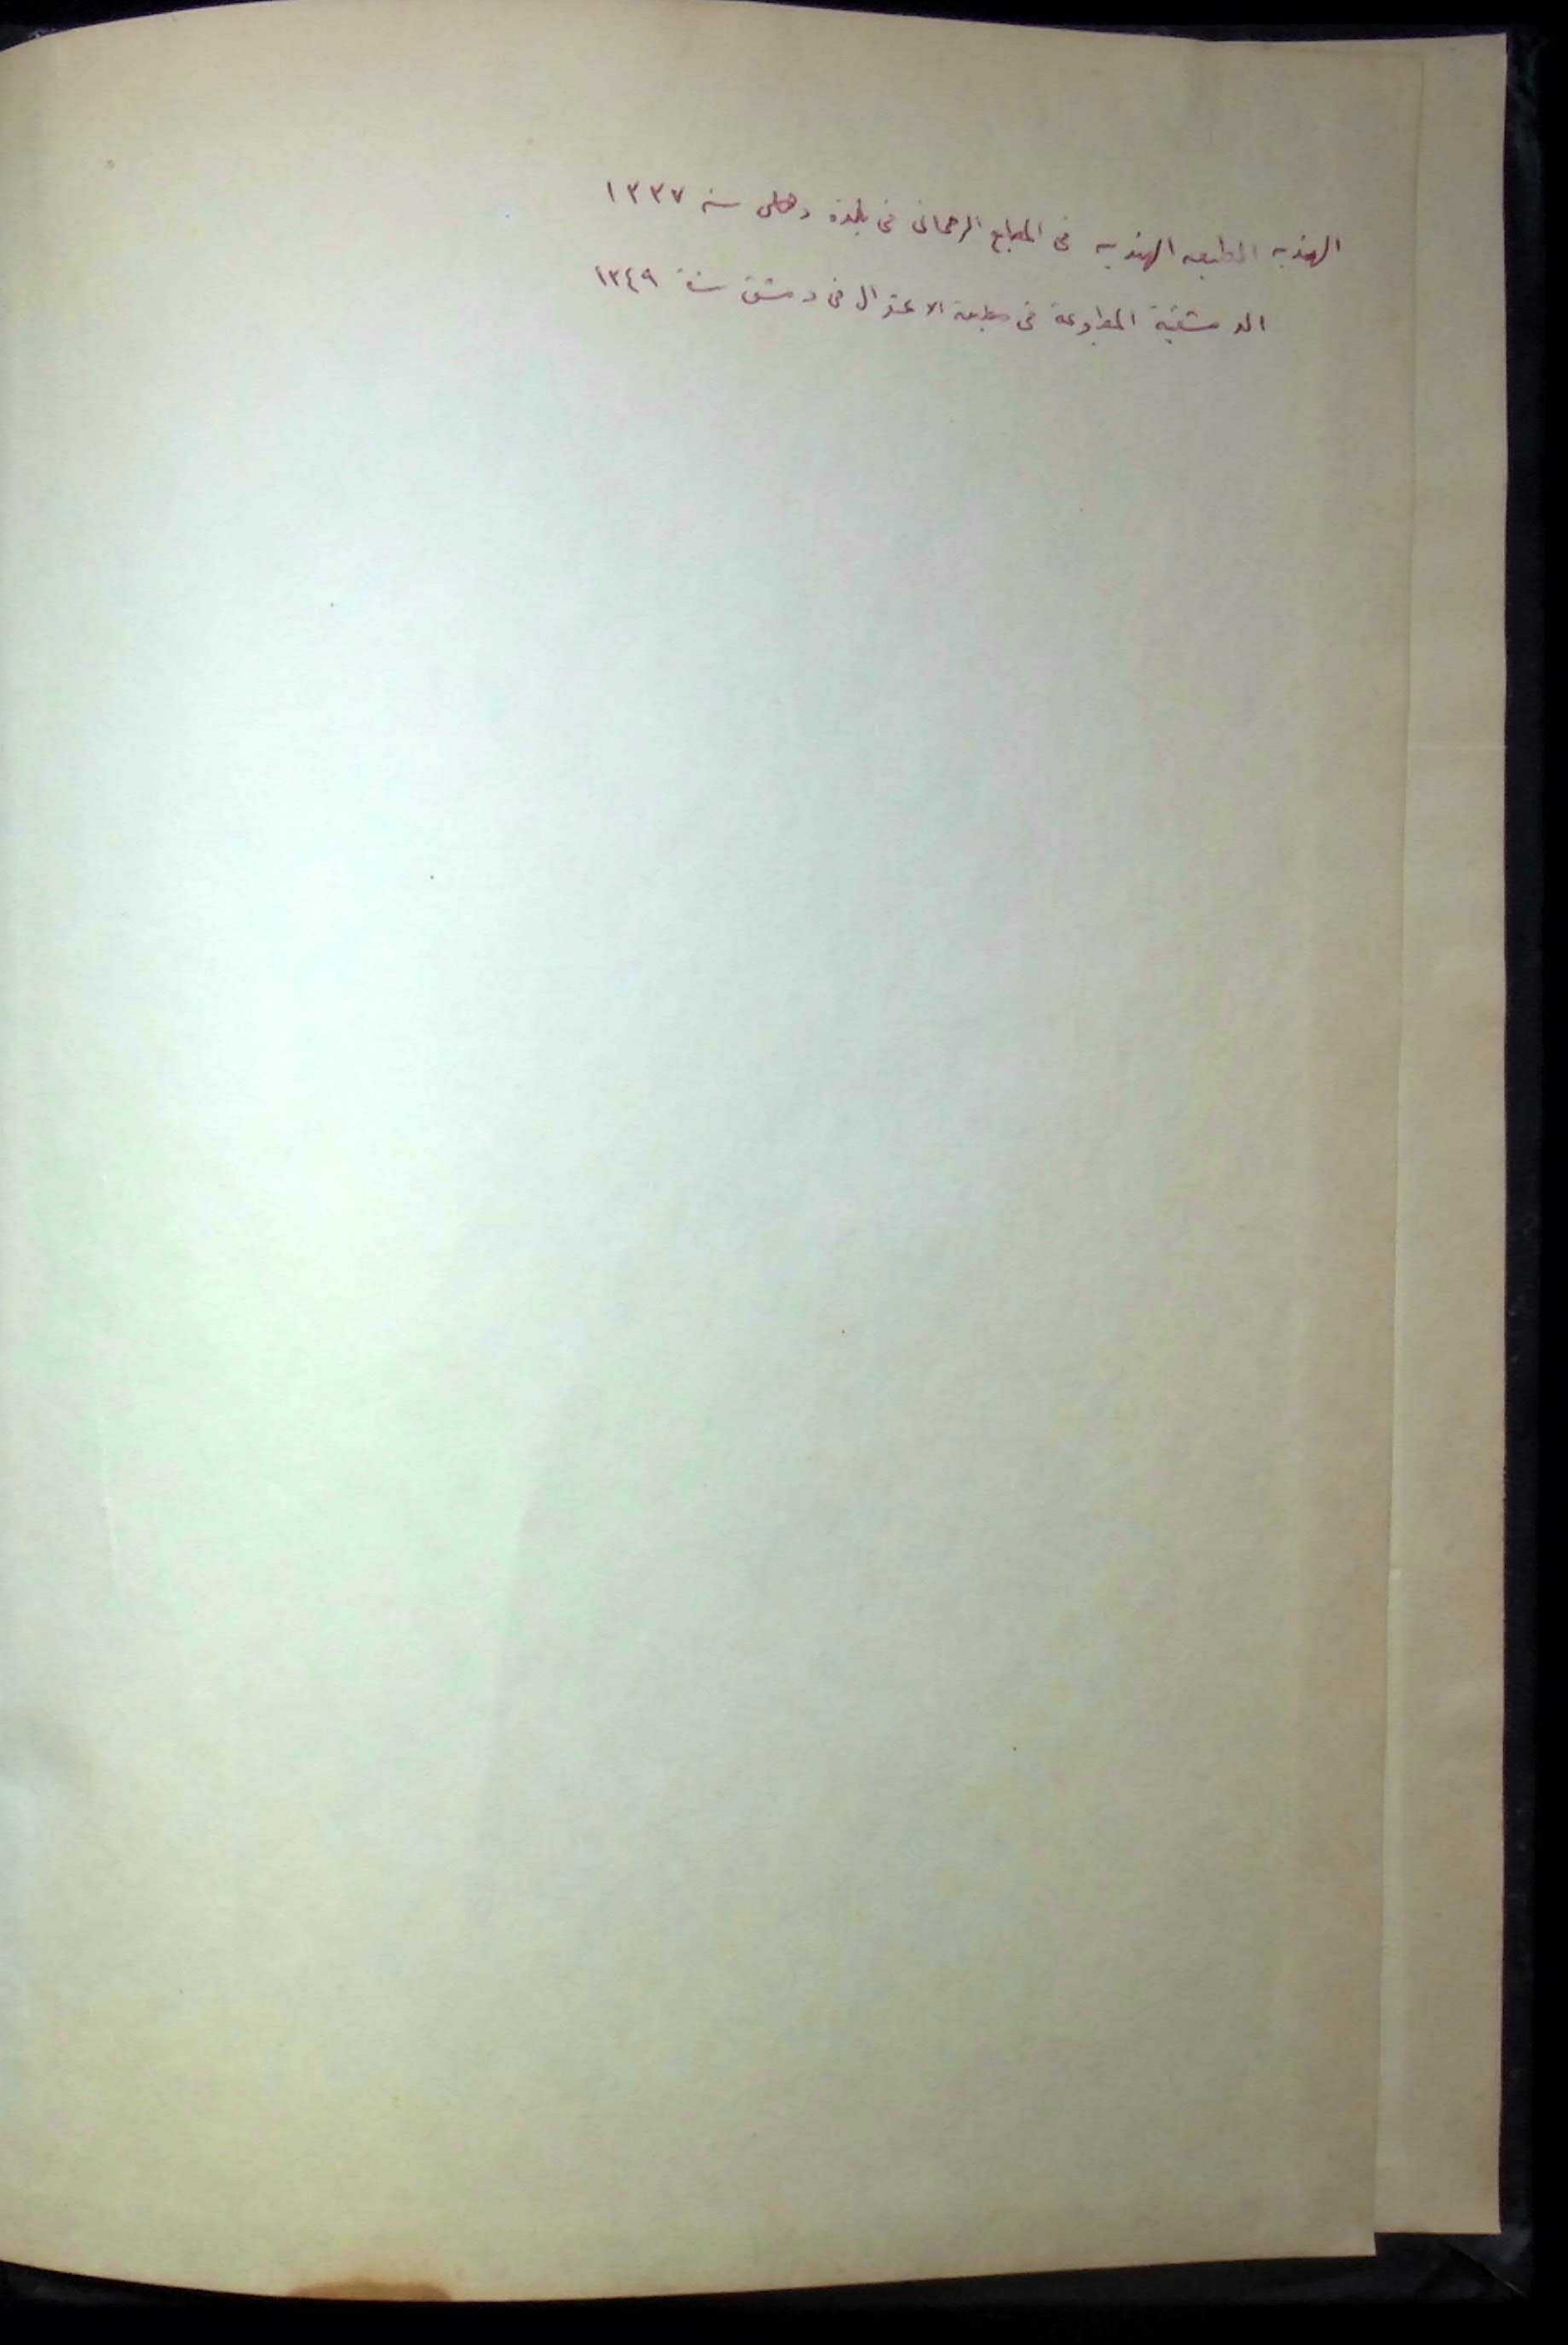 الهنديه الطبعه الهنديه فى المطابع الرحمانى فى بلدة دهلى سنه ١٣٣٧
الدمشقية المطبوعة فى مطبعة الاعتدال فى دمشق سنة ١٣٤٩